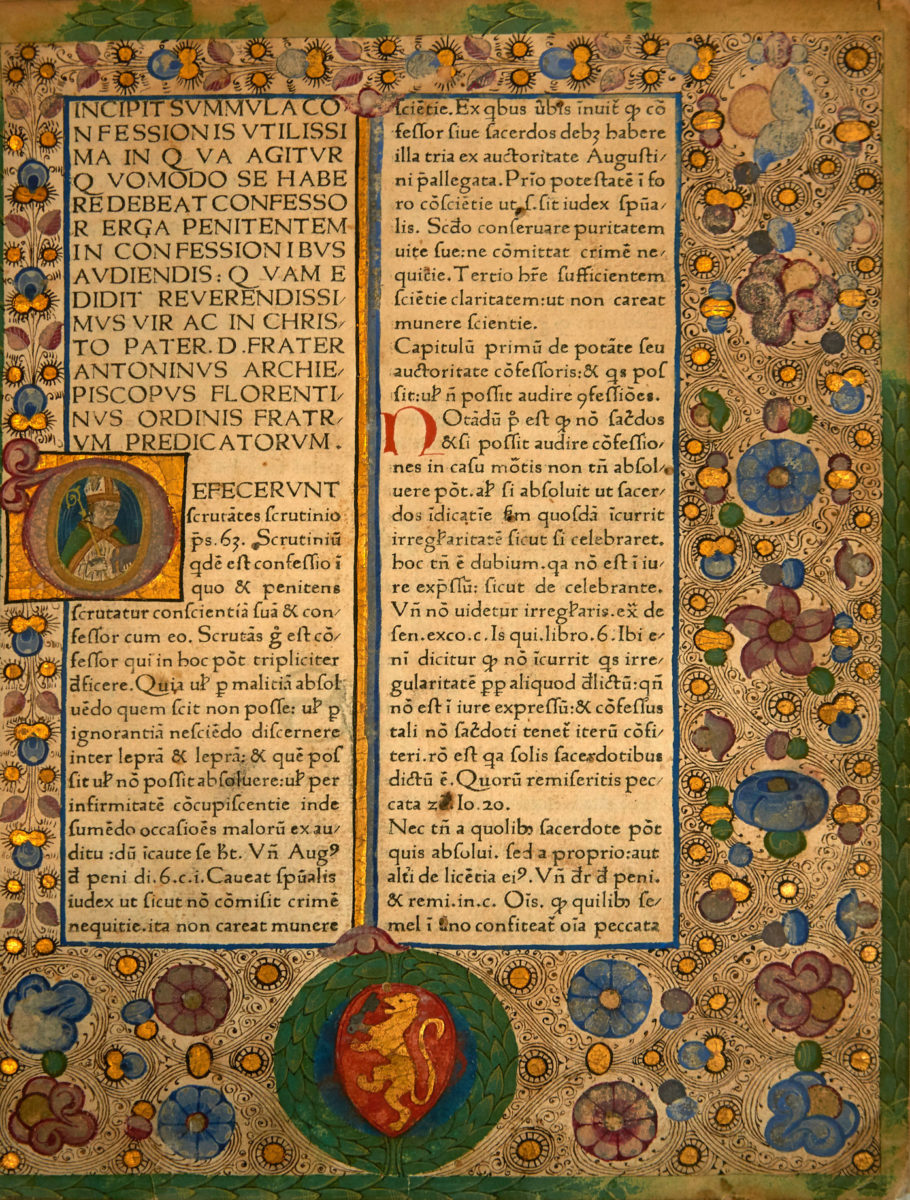 INCIPIT SVMMVLA CO
NFESSIONIS VTILISSI
MA IN QVA AGITVR
QVOMODO SE HABE
RE DEBEAT CONFESSO
R ERGA PENITENTEM
IN CONFESSIONIBVS
AVDIENDIS: QVAM E
DIDIT REVERENDISSI/
MVS VIR AC IN CHRIS/
TO PATER. D. FRATER
ANTONINVS ARCHIE/
PISCOPVS FLORENTI/
NVS ORDINIS FRATR/
VM PREDICATORVM.
DEFECERVNT
scrutātes scrutinio
p̄s. 63. Scrutiniū
qdē est confessio ī
quo & penitens
scrutatur conscientiā suā & con/
fessor cum eo. Scrutās g̊ est cō/
fessor qui in hoc pōt tripliciter
đficere. Quia ul̵ ꝑ malitiā absol
uēdo quem scit non posse: ul̵ ꝑ
ignorantiā nesciēdo discernere
inter leprā & leprā: & quē pos
sit ul̵ nō possit absoluere: ul̵ per
infirmitatē cōcupiscentie inde
sumēdo occasiōes malorū ex au/
ditu: dū īcaute se ħt. Vn̄ Augꝰ
đ peni di. 6. c. i. Caueat spūalis
iudex ut sicut nō cōmisit crimē
nequitie. ita non careat munere
sciētie. Ex qbus ūbis īnuit̄ ꝙ cō
fessor siue sacerdos debꝫ habere
illa tria ex auctoritate Augusti/
ni p̄allegata. Prīo potestatē ī fo
ro cōsciētie ut .s. sit iudex spūa/
lis. Scđo conseruare puritatem
uite sue: ne cōmittat crimē ne/
quitie. Tertio hr̄e sufficientem
sciētie claritatem: ut non careat
munere scientie.
Capitulū primū de potāte seu
auctoritate cōfessoris: & qs pos
sit: ul̵ n̄ possit audire ꝯfessiōes.
NOtādū p̊ est ꝙ nō sac̄dos
& si possit audire cōfessio/
nes in casu mōtis non tn̄ absol/
uere pōt. al̵ si absoluit ut sacer/
dos īdicatīe sm quosdā īcurrit
irregl̵aritatē sicut si celebraret.
hoc tn̄ ē dubium. qa nō est ī iu/
re exp̄ssū: sicut de celebrante.
Vn̄ nō uidetur irregl̵aris. ex̄ de
sen. exco. c. Is qui. libro. 6. Ibi e/
nī dicitur ꝙ nō īcurrit qs irre/
gularitatē ꝓp aliquod đlictū: qn̄
nō est ī iure expressū: & cōfessus
tali nō sac̄doti tenet̄ iterū cōfi/
teri. rō est qa solis sacerdotibus
dictū ē. Quorū remiseritis pec/
cata Io. 20.
Nec tn̄ a quolibꝫ sacerdote pōt
quis absolui. sed a proprio: aut
alti de licētia eiꝰ. Vn̄ dr̄ đ peni.
& remi. in. c. Oīs. ꝙ quilibꝫ se/
mel ī āno confiteat̄ oīa peccata